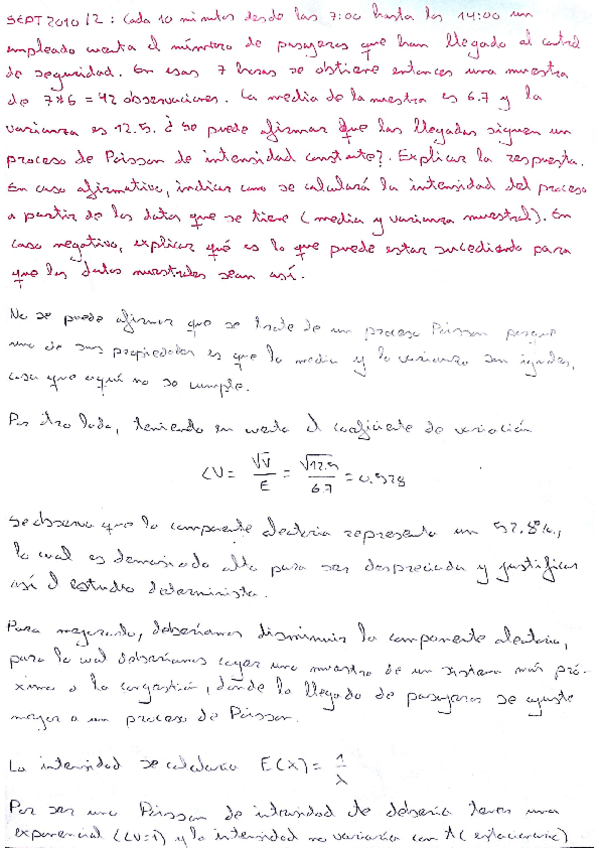 SEPT 2010/2: Cada 10 minutos desde las 7:00 hasta las 14:00 un
empleado cuenta el número de pasajeros que han llegado al control
de seguridad. En esas 7 horas se obtiene entonces una muestra
de 7*6 = 42 observaciones. La media de la muestra es 6.7 y la
varianza es 12.5. ¿Se puede afirmar que las llegadas siguen un
proceso de Poisson de intensidad constante?. Explicar la respuesta.
En caso afirmativo, indicar como se calculará la intensidad del proceso
a partir de los datos que se tiene (media y varianza muestral). En
caso negativo, explicar qué es lo que puede estar sucediendo para
que los datos muestrales sean así.
No se puede afirmar que se trate de un proceso Poisson porque
una de sus propiedades es que la media y la varianza son iguales,
cosa que aquí no se cumple.
Por otro lado, teniendo en cuenta el coeficiente de variación
CV = √V / E = √12.5 / 6.7 = 0.528
Se observa que la componente aleatoria representa un 52.8%,
lo cual es demasiado alto para ser despreciada y justificar
así el estudio determinista.
Para mejorarlo, deberíamos disminuir la componente aleatoria,
para lo cual deberíamos coger una muestra de un sistema más pró-
ximo a la congestión, donde la llegada de pasajeros se ajuste
mejor a un proceso de Poisson.
La intensidad se calcularía E(X) = 1/λ
Por ser una Poisson de intensidad cte debería tener una
exponencial (CV=1) y la intensidad no variaría con t (estacionario)